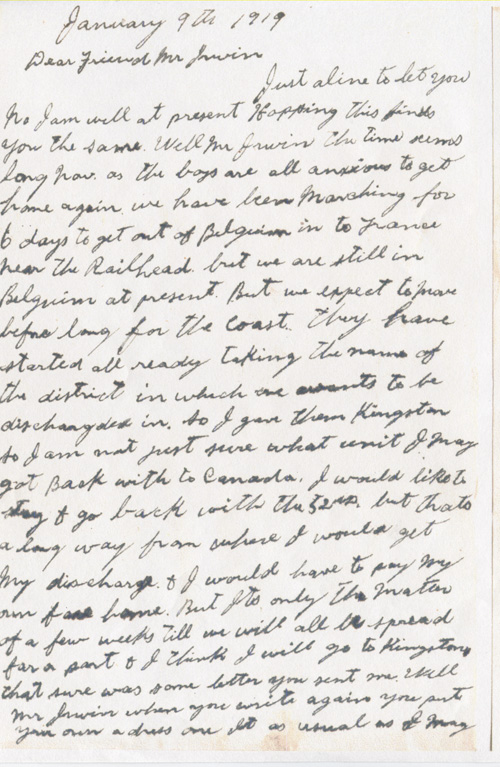 January 9th 1919
Dear Friend Mr Irwin
Just aline to let you
No I am well at present Hopping this finds
you the same. Well Mr Irwin the time seems
long Now. as the boys are all anxious to get
home again. we have been Marching for
6 days to get out of Belguim in to France
near the Railhead. but we are still in
Belguim at present. But we expect to move
before long for the Coast. They have
started all ready taking the name of
the district in which we wants to be
dischangded in. so I gave them Kingston
so I am not just sure what unit I may
got Back with to Canada. I would like to
stay & go back with the 52nd. but thats
a long way from where I would get
My discharge. & I would have to pay My
own home. But Its only the Matter
of a few weeks till we will all be spread
far a part & I think I will go to Kingston,
that sure was some letter you sent me. Well
Mr Irwin when you write again you put
your own adress one it as usual as I may